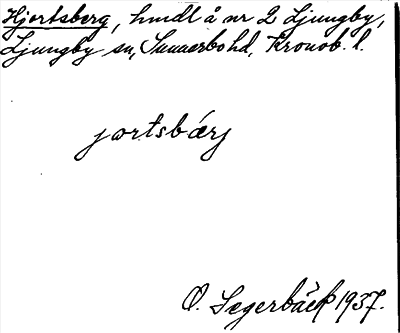 Hjortsberg, hmdl å nr 2 Ljungby,
Ljungby sn, Sunnerbo hd, Kronob. l.
jortsbærj
O. Segerbäck 1937.